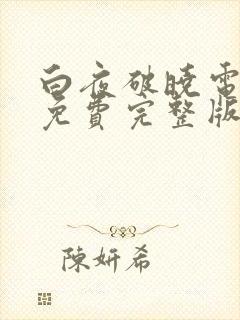 白夜破曉電
免費完整版
陳妍希